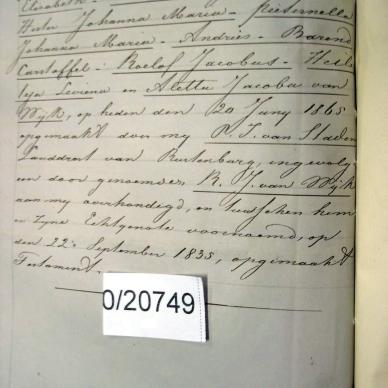 Elizabeth -
Hester Johanna Maria - Pieternella
Johanna Maria - Andries - Barend
Cantoffel - Roelof Jacobus - Heil
tje Leviena en Aletta Jacoba van
Wyk, op heden den 20 Juny 1865
opgemaakt door my P. J. van Staden
Landdrost van Rustenburg, ingevolg
een door genoemde R. J. van Wyk
aan my overhandigd, en tusschen hem
en zyne Echtgenote voornoemd, op
den 22e September 1835, opgemaakt
Testament.
0/20749